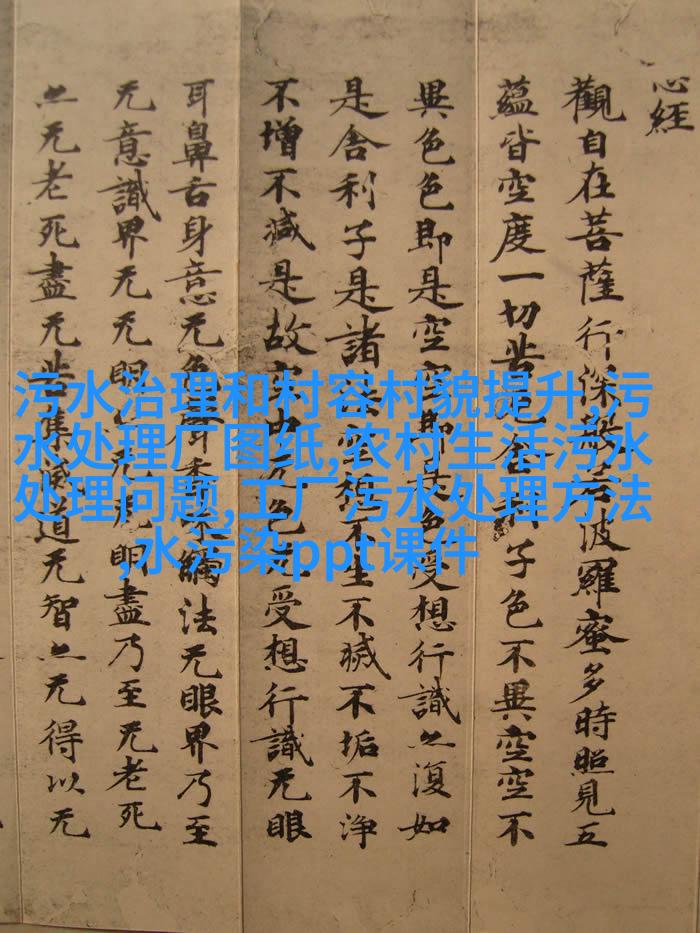 心經
觀自在菩薩行深般若波羅蜜多時照見五
蘊皆空度一切苦厄舍利子色不異空空不
異色色即是空空即是色受想行識亦復如
是舍利子是諸法空相不生不滅不垢不淨
不增不減是故空中无色无受想行識无眼
耳鼻舌身意无色聲香味觸法无眼界乃至
无意識界无无明亦无无明盡乃至无老死
亦无老死盡无苦集滅道无智亦无得以无
污水治理和村容村貌提升,污
水处理厂图纸,农村生活污水
处理问题,工厂污水处理方法
,水污染ppt课件